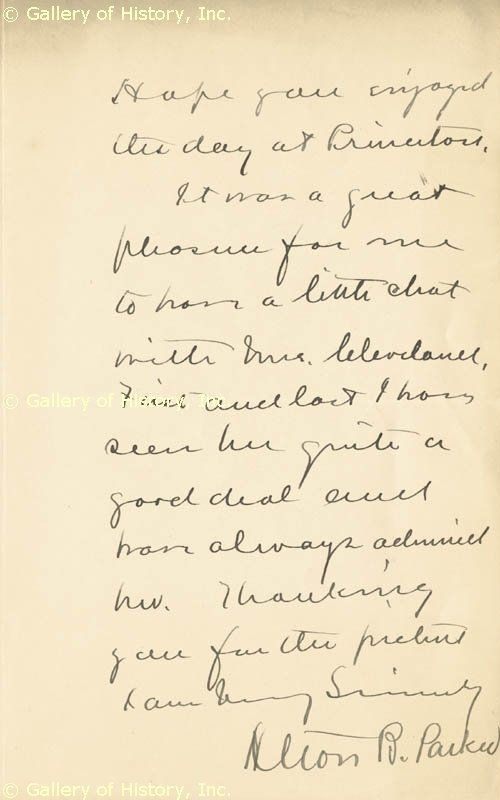 © Gallery of History, Inc.
Hope you enjoyed
the day at Princeton.
It was a great
pleasure for me
to have a little chat
with Mrs. Cleveland,
© Gallery of History, Inc.
First and last I have
seen her quite a
good deal and
have always admired
her. Thanking
you for the picture
I am Very Sincerely
Alton B. Parker
© Gallery of History, Inc.